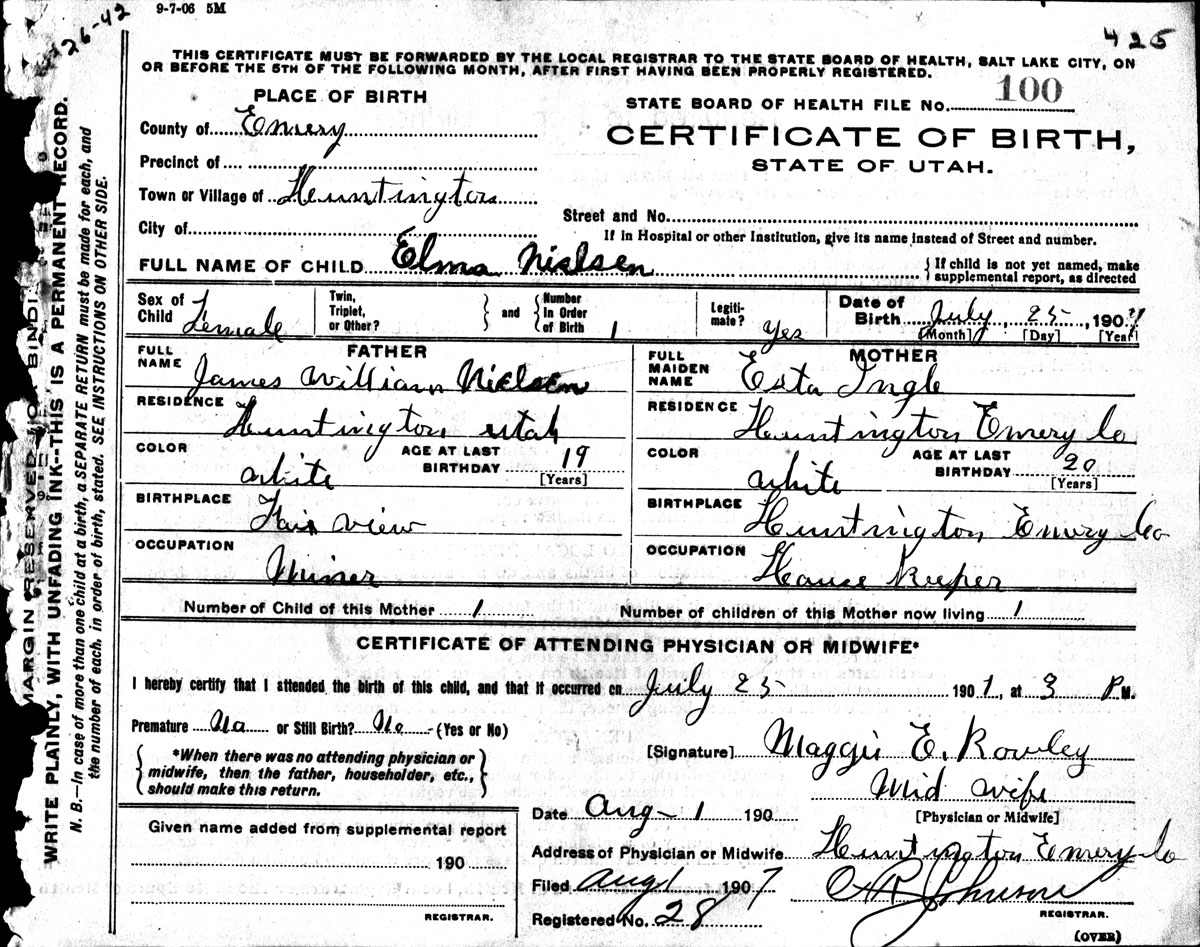 9-7-06 5M
26-42
425
THIS CERTIFICATE MUST BE FORWARDED BY THE LOCAL REGISTRAR TO THE STATE BOARD OF HEALTH, SALT LAKE CITY, ON
OR BEFORE THE 5TH OF THE FOLLOWING MONTH, AFTER FIRST HAVING BEEN PROPERLY REGISTERED.
PLACE OF BIRTH
STATE BOARD OF HEALTH FILE No. 100
County of Emery
CERTIFICATE OF BIRTH,
STATE OF UTAH.
Precinct of
Town or Village of Huntington
Street and No.
City of
If in Hospital or other Institution, give its name instead of Street and number.
FULL NAME OF CHILD Elma Nielsen { If child is not yet named, make
supplemental report, as directed
Sex of Child Female
Twin, Triplet, or Other? } and { Number In Order of Birth 1
Legiti-mate? Yes
Date of Birth July 25, 1907
[Month] [Day] [Year]
FATHER
MOTHER
FULL NAME James William Nielsen
FULL MAIDEN NAME Exta Ingle
RESIDENCE Huntington utah
RESIDENCE Huntington Emery Co
COLOR white AGE AT LAST BIRTHDAY 19 [Years]
COLOR white AGE AT LAST BIRTHDAY 20 [Years]
BIRTHPLACE Fair view
BIRTHPLACE Huntington Emery Co
OCCUPATION Miner
OCCUPATION House keeper
Number of Child of this Mother 1 Number of children of this Mother now living 1
CERTIFICATE OF ATTENDING PHYSICIAN OR MIDWIFE*
I hereby certify that I attended the birth of this child, and that it occurred on July 25 1907, at 3 P M.
Premature No or Still Birth? No (Yes or No)
{ *When there was no attending physician or
midwife, then the father, householder, etc.,
should make this return. }
[Signature] Maggie E. Rowley
Mid wife
[Physician or Midwife]
Date Aug 1 190
Given name added from supplemental report
190
REGISTRAR.
Address of Physician or Midwife Huntington Emery Co
Filed Aug 1 1907
Johnson
REGISTRAR.
Registered No. 28
(OVER)
MARGIN RESERVED FOR BINDI
WRITE PLAINLY, WITH UNFADING INK--THIS IS A PERMANENT RECORD.
N. B.—In case of more than one child at a birth, a SEPARATE RETURN must be made for each, and
the number of each, in order of birth, stated. SEE INSTRUCTIONS ON OTHER SIDE.